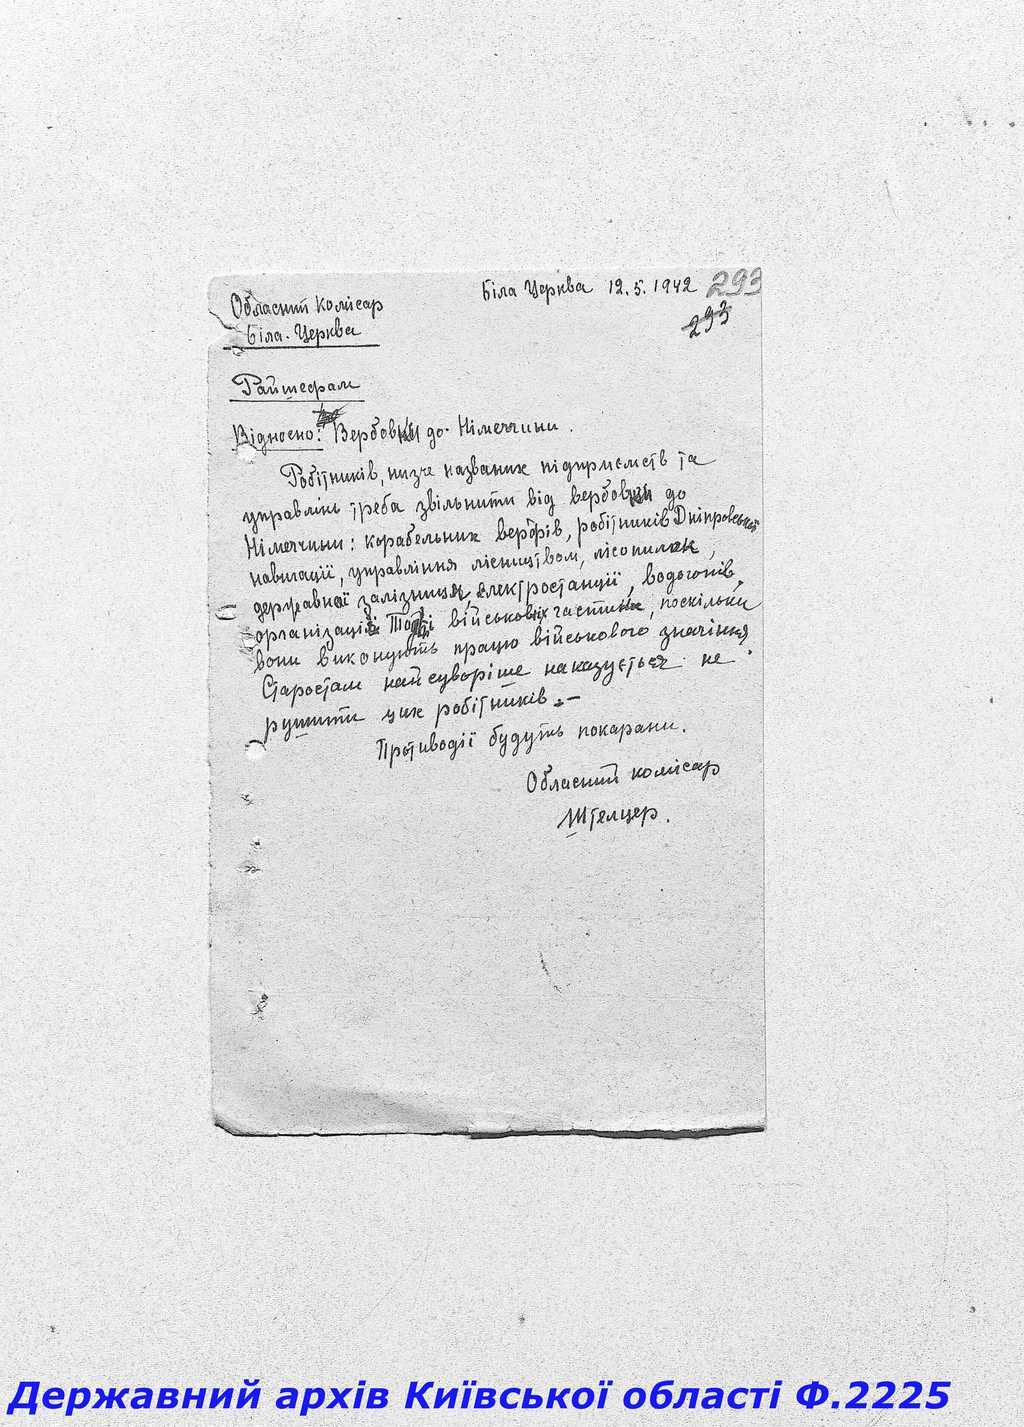 Біла Церква 12.5.1942 293
293
Обласний Комісар
Біла-Церква
Райшефам
Відносно: Вербовки до Німеччини.
Робітників, низче названих підприємств та
управлінь треба звільнити від вербовки до
Німеччини: корабельних верфів, робітників Дніпровської
навигації, управління лісництвом, лісопилок,
державної залізниці, електростанції, водогонів,
організації Тодті військових частинах, поскільки
вони виконують працю військового значіння
Старостам найсуворіше наказується не
рушити цих робітників.-
Противодії будуть покарани.
Обласний комісар
Штелцер.
Державний архів Київської області Ф.2225